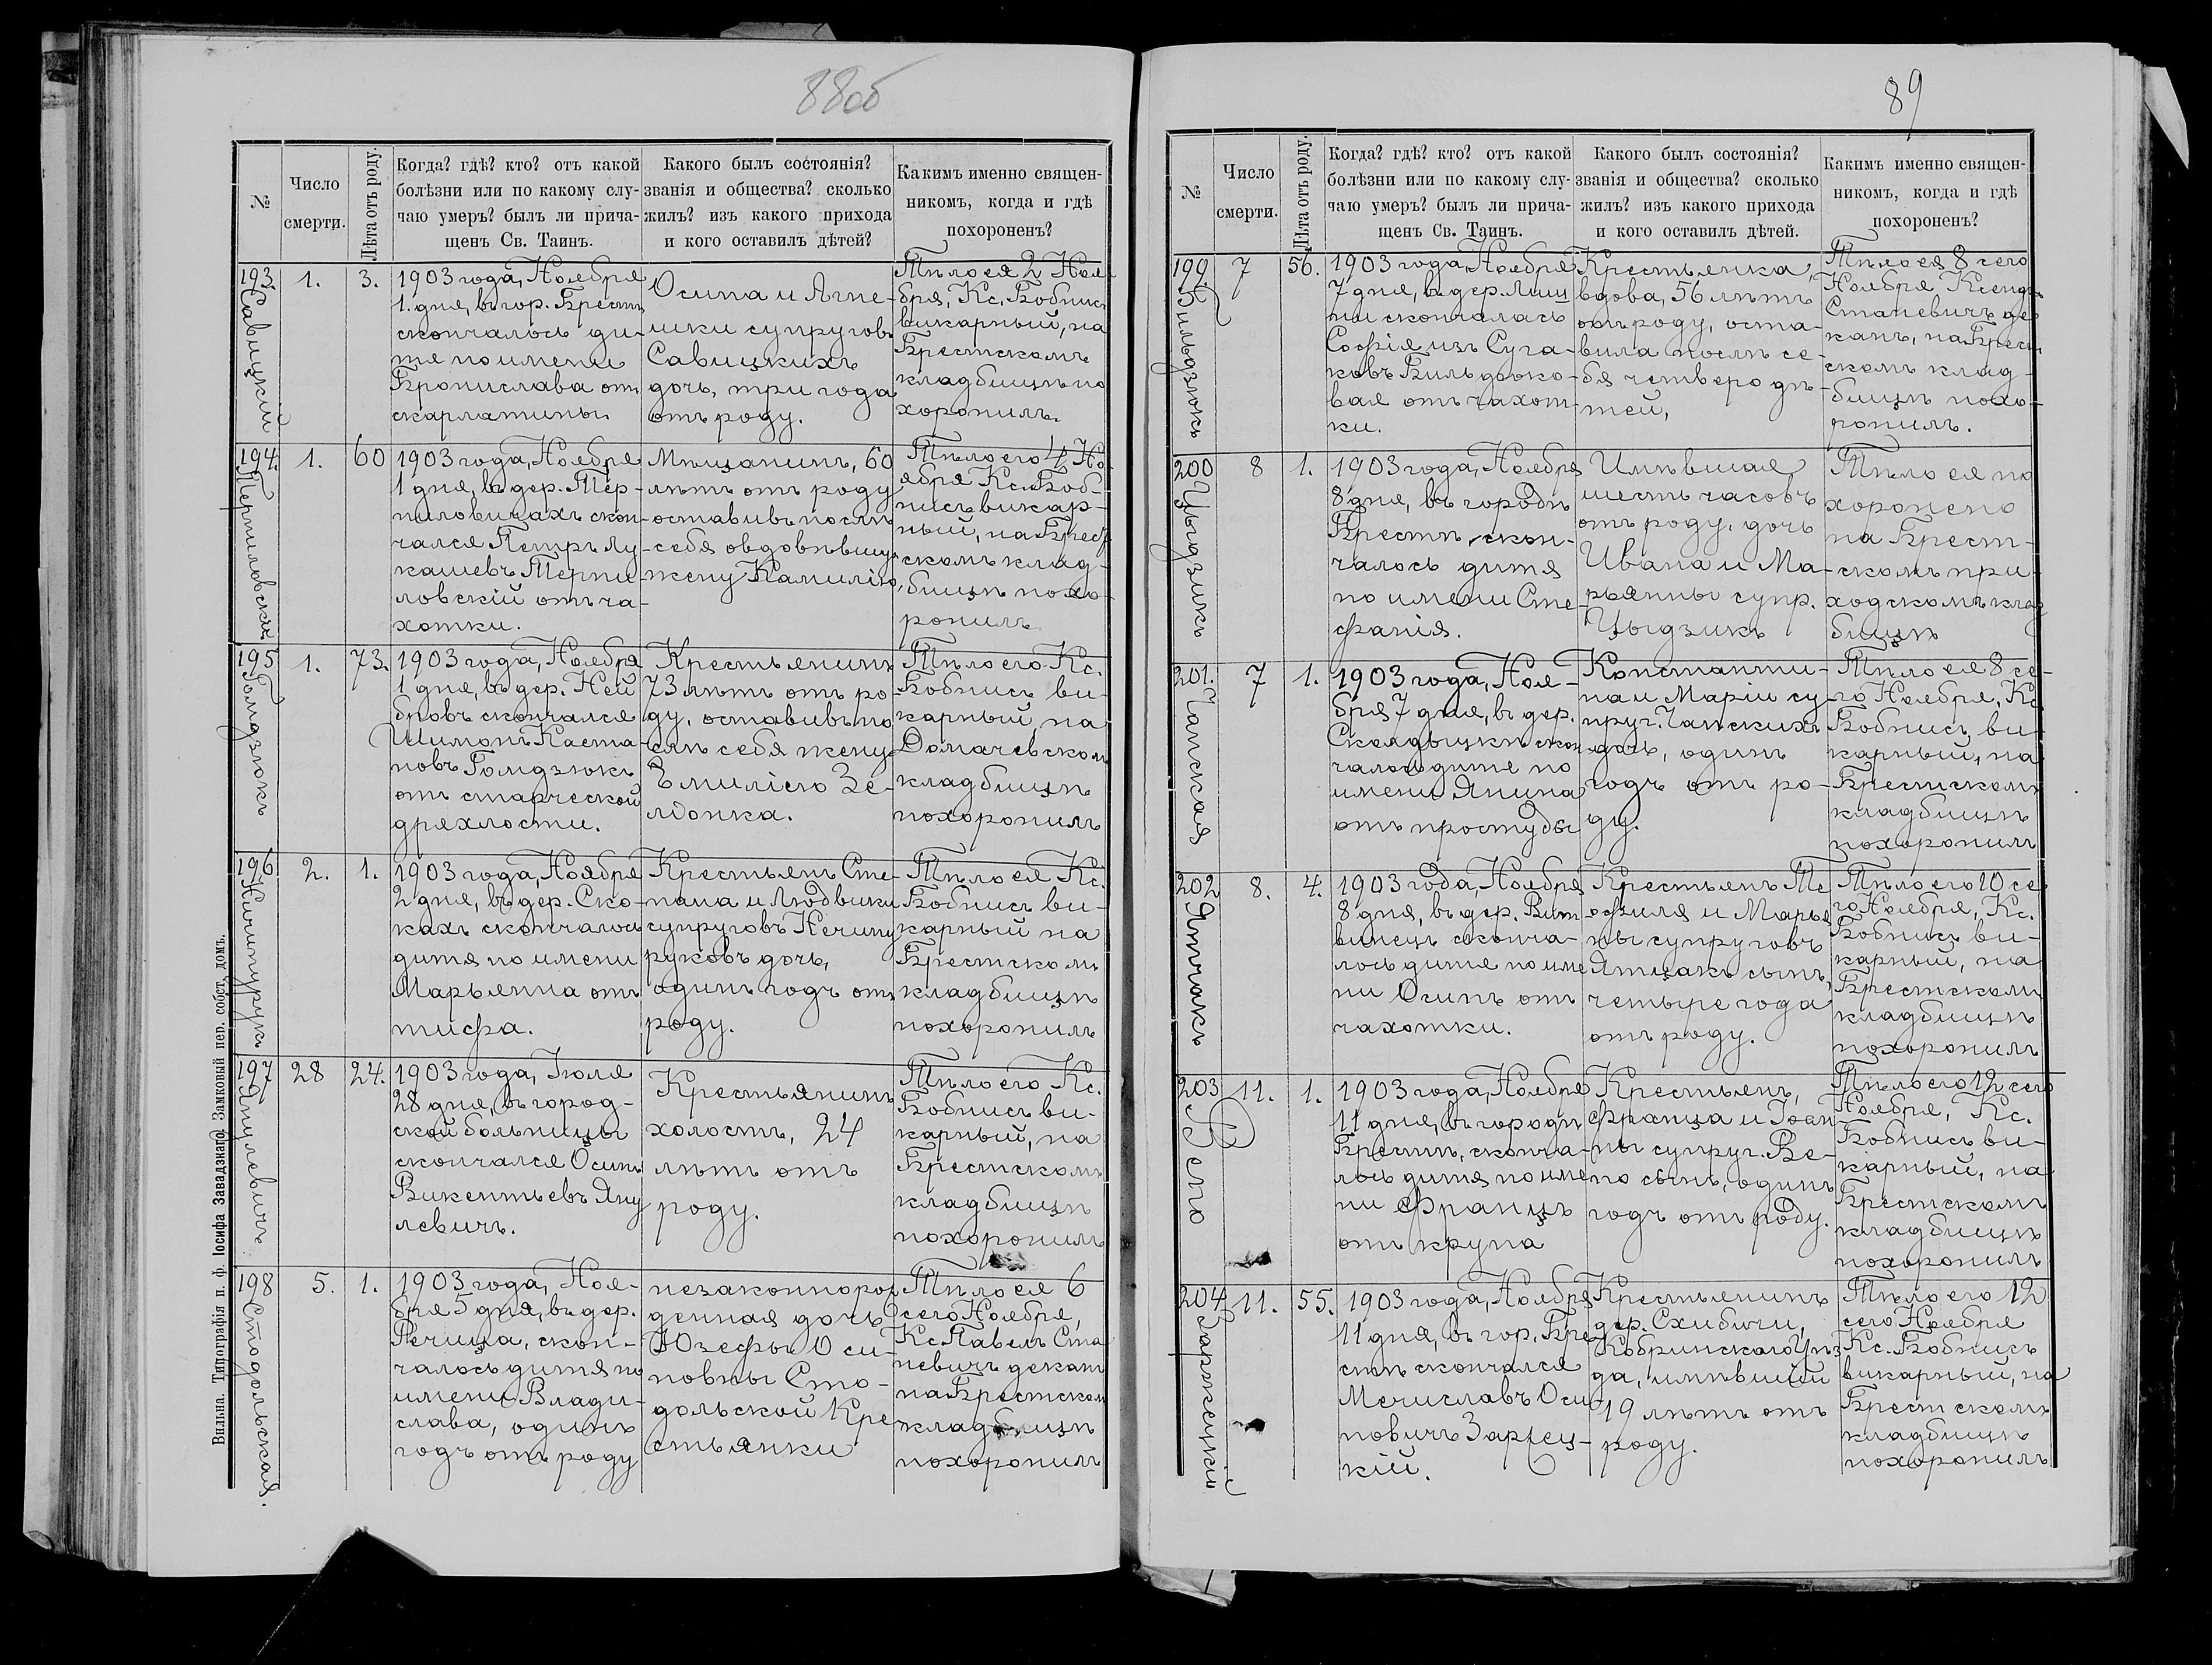 88об
№
Число
смерти.
Лѣта отъ роду.
Когда? гдѣ? кто? отъ какой
болѣзни или по какому слу-
чаю умеръ? былъ ли прича-
щенъ Св. Таинъ.
Какого былъ состоянія?
званія и общества? сколько
жилъ? изъ какого прихода
и кого оставилъ дѣтей?
Какимъ именно священ-
никомъ, когда и гдѣ
похороненъ?
193
Савицкий
1.
3.
1903 года, Ноября
1. дня, въ гор. Брестѣ
скончалось ди-
тя по имени
Бронислава отъ
скарлатины
Осипа и Агне-
шки супруговъ
Савицкихъ
дочь, три года
отъ роду.
Тѣло ея 2 Ноя-
бря, Кс. Бобнисъ
викарный, на
Брестскомъ
кладбищѣ по
хоронилъ.
194.
Терпиловскій
1.
60
1903 года, Ноября
1 дня, въ дер. Тер-
пиловичахъ скон-
чался Петръ Лу-
кашевъ Терпи-
ловскій отъ ча-
хотки.
Мѣщанинъ, 60
лѣтъ отъ роду
оставивъ послѣ
себя овдовѣвшую
жену Камилію,
Тѣло его 4 Но-
ября Кс. Боб-
нисъ викар-
ный, на Брест
скомъ клад-
бищѣ похо-
ронилъ
195
Гомдзюкъ
1.
73.
1903 года, Ноября
1 дня, въ дер. Ней
бровъ скончался
Шимонъ Каета-
новъ Гомдзюкъ
отъ старческой
дряхлости.
Крестьянинъ
73 лѣтъ отъ ро-
ду, оставивъ по
слѣ себя жену
Эмилію Зе-
лѣонка.
Тѣло его Кс.
Бобнисъ ви-
карный на
Домачевском
кладбищѣ
похоронилъ
196
Ничипурукъ
2.
1.
1903 года, Ноября
2 дня, въ дер. Ско-
кахъ скончалось
дитя по имени
Марьянна отъ
тифа.
Крестьянъ Сте-
пана и Людвики
супруговъ Нечипу
руковъ дочь,
одинъ годъ отъ
роду.
Тѣло ея Кс.
Бобнисъ ви-
карный на
Брестскомъ
кладбищѣ
похоронилъ
197
Янулевичъ
28
24.
1903 года, Іюля
28 дня, въ город-
ской больницы
скончался Осипъ
Викентьевъ Яну
левичъ.
Крестьянинъ
холостъ, 24
лѣтъ отъ
роду.
Тѣло его Кс.
Бобнисъ ви-
карный, на
Брестскомъ
кладбищѣ
похоронилъ
198
Стодольская.
5.
1.
1903 года, Ноя-
бря 5 дня, въ дер.
Речица, скон-
чалось дитя по
имени Влади-
слава, одинъ
годъ отъ роду
незаконнорож
денная дочь
Юзефы Оси-
повны Сто-
дольской Кре-
стьянки
Тѣло ея 6
сего Ноября,
Кс Павелъ Ста
невичъ деканъ
на Брестском
кладбищѣ
похоронилъ
Вильна. Типографія п. ф. Іосифа Завадзкаго. Замковый пер. собст. домъ.
89
№
Число
смерти.
Лѣта отъ роду.
Когда? гдѣ? кто? отъ какой
болѣзни или по какому слу-
чаю умеръ? былъ ли прича-
щенъ Св. Таинъ.
Какого былъ состоянія?
званія и общества? сколько
жилъ? изъ какого прихода
и кого оставилъ дѣтей.
Какимъ именно священ-
никомъ, когда и гдѣ
похороненъ?
199.
Бильдзюкъ
7
56.
1903 года, Ноября
7 дня, въ дер. Лищ
ни скончалась
Софія изъ Суга-
ковъ Бильдзюко-
вая отъ чахот-
ки.
Крестьянка,
вдова, 56 лѣтъ
отъ роду, оста-
вила послѣ се-
бя четверо дѣ-
тей,
Тѣло ея 8 сего
Ноября Ксендзъ
Станевичъ де
канъ, на Брест
скомъ клад-
бищѣ похо-
ронилъ.
200
Цыдзикъ
8
1.
1903 года, Ноября
8 дня, въ городѣ
Брестѣ, скон-
чалось дитя
по имени Сте-
фанія.
Имѣвшая
шесть часовъ
отъ роду, дочь
Ивана и Ма-
рьянны супр.
Цыдзикъ
Тѣло ея по
хоронено
на Брест-
скомъ при-
ходскомъ клад
бищѣ
201.
Чапская
7
1.
1903 года, Ноя-
бря 7 дня, въ дер.
скон
чалось дитя по
имени Янина
отъ простуды
Константи-
на и Маріи су
пруг. Чапскихъ
дочь, одинъ
годъ отъ ро-
ду.
Тѣло ея 8 се-
го Ноября, Кс.
Бобнисъ, ви-
карный, на
Брестскомъ
кладбищѣ
похоронилъ
202
Ятчакъ
8.
4.
1903 года, Ноября
8 дня, въ дер. Вит
сконча-
лось дитя по име
ни Осипъ отъ
чахотки.
Крестьянъ Те
офиля и Марья
нны супруговъ
Ятчакъ сынъ,
четыре года
отъ роду.
Тѣло его 10 се
го Ноября, Кс.
Бобнисъ ви-
карный, на
Брестскомъ
кладбищѣ
похоронилъ
203
Вепо
11.
1.
1903 года, Ноября
11 дня, въ городѣ
Брестѣ, сконча-
лось дитя по име
ни Францъ
отъ крупа
Крестьянъ,
Франца и Іоан
ны супруг. Ве-
по сынъ, одинъ
годъ отъ роду.
Тѣло его 12 сего
Ноября, Кс.
Бобнисъ ви-
карный, на
Брестскомъ
кладбищѣ
похоронилъ
204
Заржецкій
11.
55.
1903 года, Ноября
11 дня, въ гор. Бре
стѣ скончался
Мечиславъ Оси-
повичъ Заржец-
кій.
Крестьянинъ
дер. Схибичи,
Кобринскаго Уѣз
да, имѣвший
19 лѣтъ отъ
роду.
Тѣло его 12
сего Ноября
Кс. Бобнисъ
викарный, на
Брестскомъ
кладбищѣ
похоронилъ